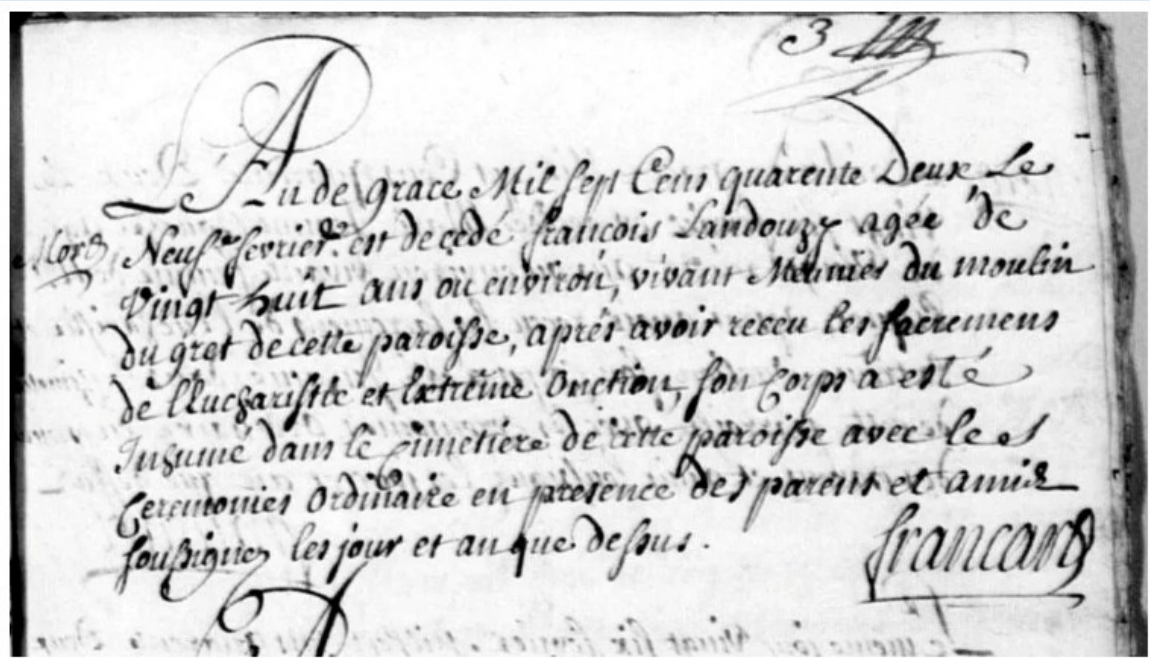 3
Le An de grace Mil sept Cens quarente Deux Le
Mort Neufe fevrier est decedé francois Landouzy agée de
Vingt huit ans ou environ, vivant Meunier du moulin
du gret de cette paroisse, aprés avoir receu les sacremens
de l'Eucharistie et Extreme Onction, son Corps a esté
Inhumé dans le Cimetiere de cette paroisse avec les
Ceremonies Ordinaire en presence des parens et amis
soussignez les jour et an que dessus.
francart